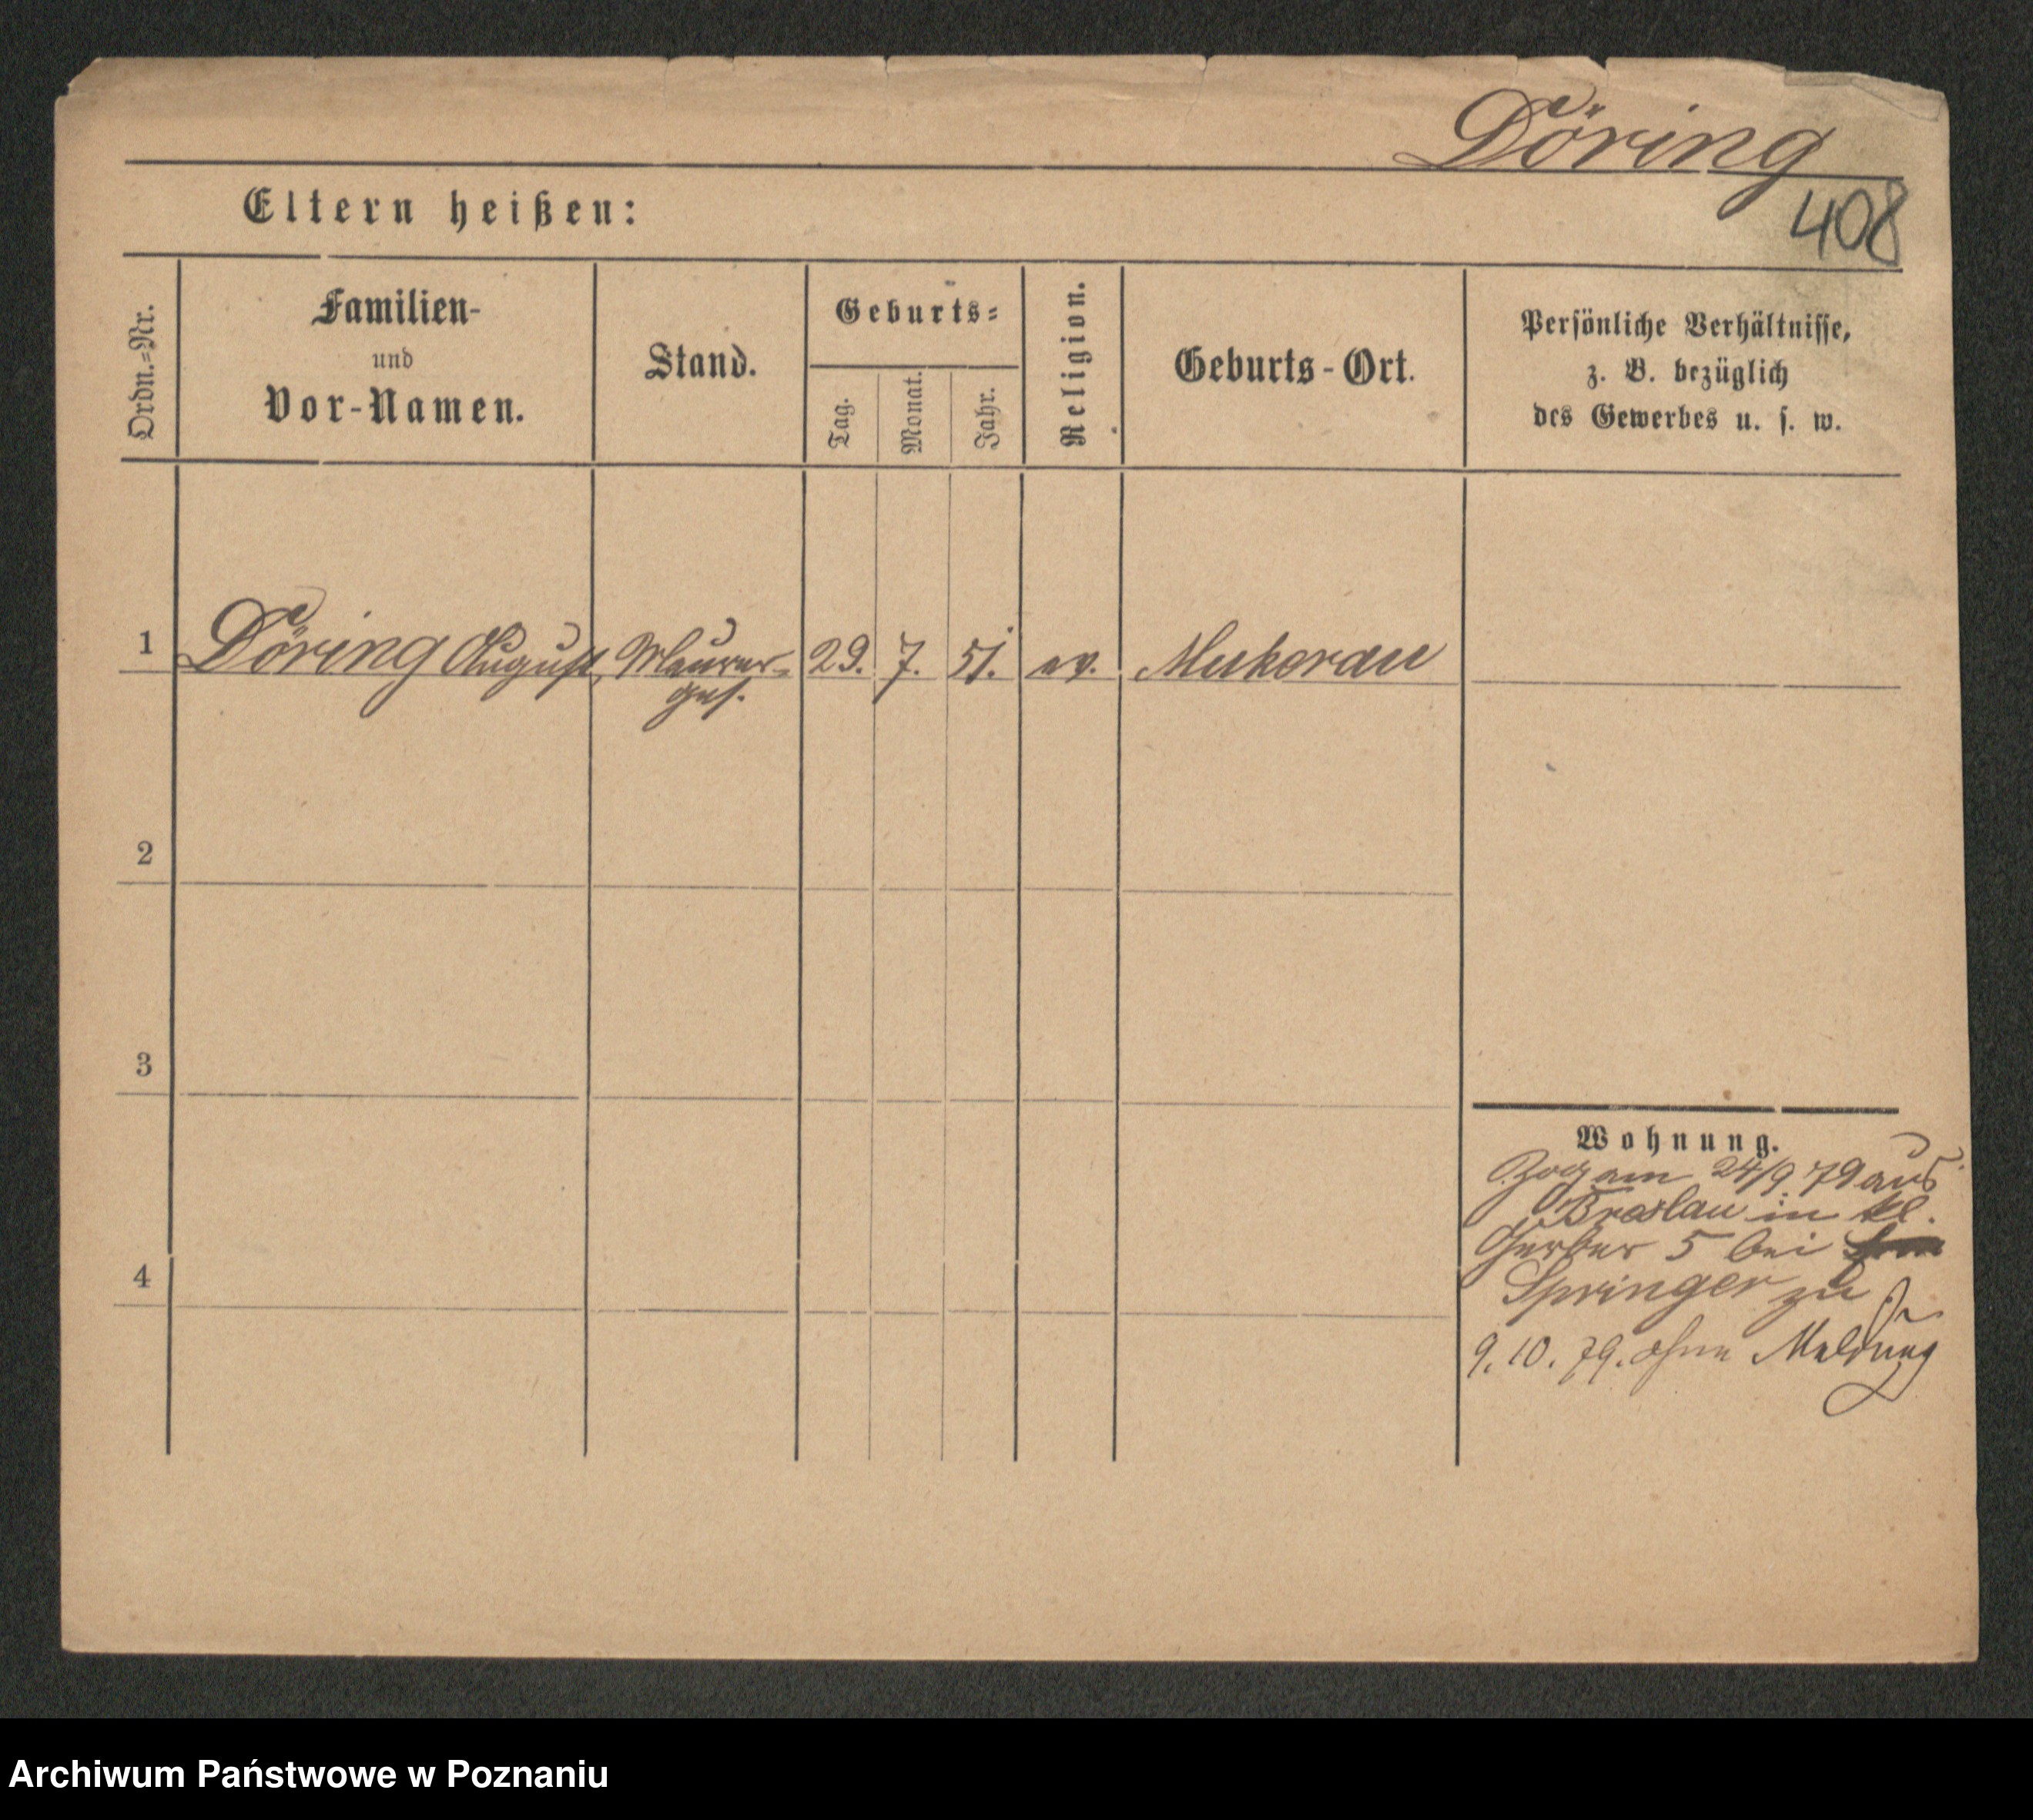 Döring
408
Eltern heißen:
Ordn.=Nr.
Familien-
und
Vor-Namen.
Stand.
Geburts=
Tag.
Monat.
Jahr.
Religion.
Geburts-Ort.
Persönliche Verhältnisse,
z. B. bezüglich
des Gewerbes u. s. w.
1 Döring August, Maurer= 29. 7. 51. ev. Mukorau
ges.
2
3
4
Wohnung.
Zog am 24/9 79 aus
Breslau in kl.
Gerber 5 bei
Springer zu
9. 10. 79. ohne Meldung
Archiwum Państwowe w Poznaniu